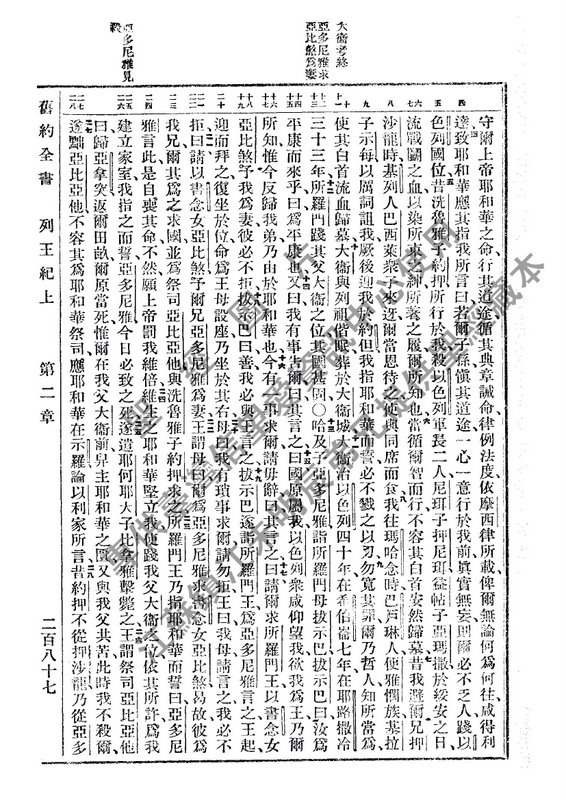 大衛考終
亞多尼雅求
亞比煞爲妻
亞多尼雅見
殺
守爾上帝耶和華之命行其道途循其典章誡命律例法度依摩西律所載俾爾無論何爲何往咸得利
四 達致耶和華應其指我所言曰若爾子孫愼其道途一心一意行於我前眞實無妄則爾必不乏人踐以
五 色列國位昔洗魯雅子約押所行於我殺以色列軍長二人尼珥子押尼珥益帖子亞瑪撒於綏安之日
六七 流戰鬬之血以染所束之紳所著之履爾所知也當循爾智而行不容其白首安然歸墓昔我避爾兄押
八 沙龍時基列人巴西萊衆子來迓爾當恩待之使與同席而食我往瑪哈念時巴戶琳人便雅憫族基拉
九 子示每以厲詞詛我厥後迎我於約但我指耶和華而誓必不戮之以刃勿寬其罪爾乃哲人知所當爲
十十一 使其白首流血歸墓大衛與列祖偕眠葬於大衛城大衛治以色列四十年在希伯崙七年在耶路撒冷
十二十三 三十三年所羅門踐其父大衛之位其國甚固○哈及子亞多尼雅詣所羅門母拔示巴拔示巴曰汝爲
十四十五 平康而來乎曰爲平康也又曰我有事告爾曰其言之曰國原屬我以色列衆咸仰望我欲我爲王乃爾
十六十七 所知惟今反歸我弟乃由於耶和華也今有一事求爾請毋辭曰其言之曰請爾求所羅門王以書念女
十八十九 亞比煞予我爲妻彼必不拒拔示巴曰善我必與王言之拔示巴遂詣所羅門王爲亞多尼雅言之王起
二十 迎而拜之復坐於位命爲王母設座乃坐於其右母曰我有瑣事求爾請勿拒王曰我母請言之我必不
二一二二 拒曰請以書念女亞比煞予爾兄亞多尼雅爲妻王謂母曰何爲亞多尼雅求書念女亞比煞曷故彼爲
二三 我兄爾其爲之求國並爲祭司亞比亞他與洗魯雅子約押求之所羅門王乃指耶和華而誓曰亞多尼
二四 雅言此是自喪其命不然願上帝罰我維倍維生之耶和華堅立我使踐我父大衛之位依其所許爲我
二五二六 建立家室我指之而誓亞多尼雅今日必致之死遂遣耶何耶大子比拿雅擊斃之王謂祭司亞比亞他
曰歸亞拿突返爾田畝爾原當死惟爾在我父大衛前舁主耶和華之匱又與我父共苦此時我不殺爾
二七二八 遂黜亞比亞他不容其爲耶和華祭司應耶和華在示羅論以利家所言昔約押不從押沙龍乃從亞多
舊約全書 列王紀上 第二章 二百八十七